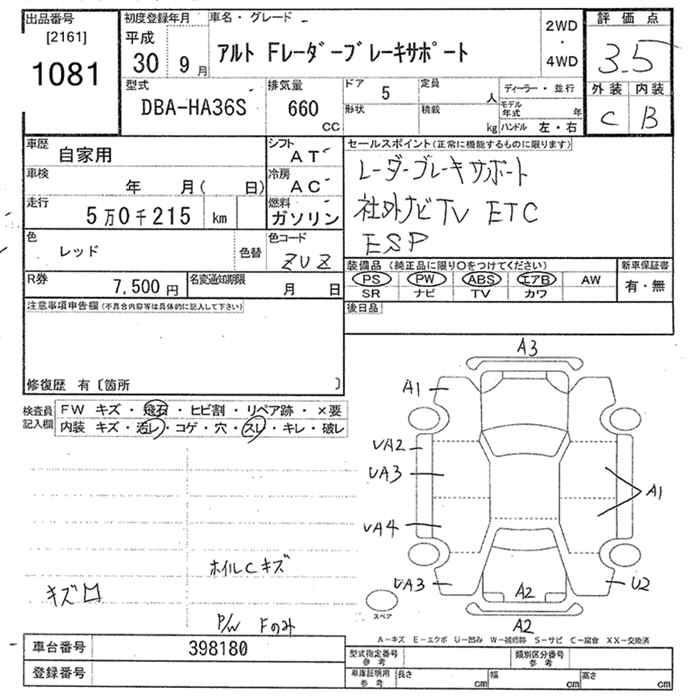 出品番号
[2161]
1081
初度登録年月
平成
30 9 月
車名・グレード
アルト Fレーダーブレーキサポート
2WD
・
4WD
評価点
3.5
外装 内装
C B
型式
DBA-HA36S
排気量
660
CC
ドア 5
定員 人
形状
積載 kg
ディーラー・並行
モデル年式 年
ハンドル 左・右
車歴
自家用
シフト
AT
車検
年 月( 日)
冷房
AC
走行
5万0千215 km
燃料
ガソリン
色
レッド
色替
色コード
ZUZ
R券
7,500円
名変通知期限
月 日
セールスポイント(正常に機能するものに限ります)
レーダーブレーキサポート
社外ナビTV ETC
ESP
装備品 (純正品に限り○をつけてください)
新車保証書
PS PW ABS エアB AW
SR ナビ TV カワ
有・無
注意事項申告欄(不具合内容等は具体的に記入して下さい)
後日品
修復歴 有〔箇所 〕
検査員
記入欄
FW キズ・飛石・ヒビ割・リペア跡・×要
内装 キズ・汚レ・コゲ・穴・スレ・キレ・破レ
A3
A1
UA2
UA3
A1
UA4
UA3
A2
U2
A2
スペア
ホイルCキズ
キズ
P/W Fのみ
A-キズ E-エクボ U-凹み W-補修跡 S-サビ C-腐食 XX-交換済
車台番号
398180
登録番号
型式指定番号
参考
類別区分番号
参考
車庫証明用
参考
長さ cm
幅 cm
高さ cm